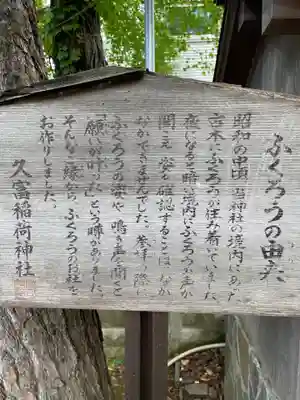 ふくろうの由来
昭和の中頃、当神社の境内にあった
古木にふくろうが住み着いていました
夜になると暗い境内にふくろうの声が
聞こえ、姿を確認することは、なか
なかできませんでした。参拝の際に
ふくろうの姿や、鳴き声を聞くと
「願いが叶った」という噂がありました。
そんなご縁から、ふくろうのお社を
お作りしました。
久富稲荷神社